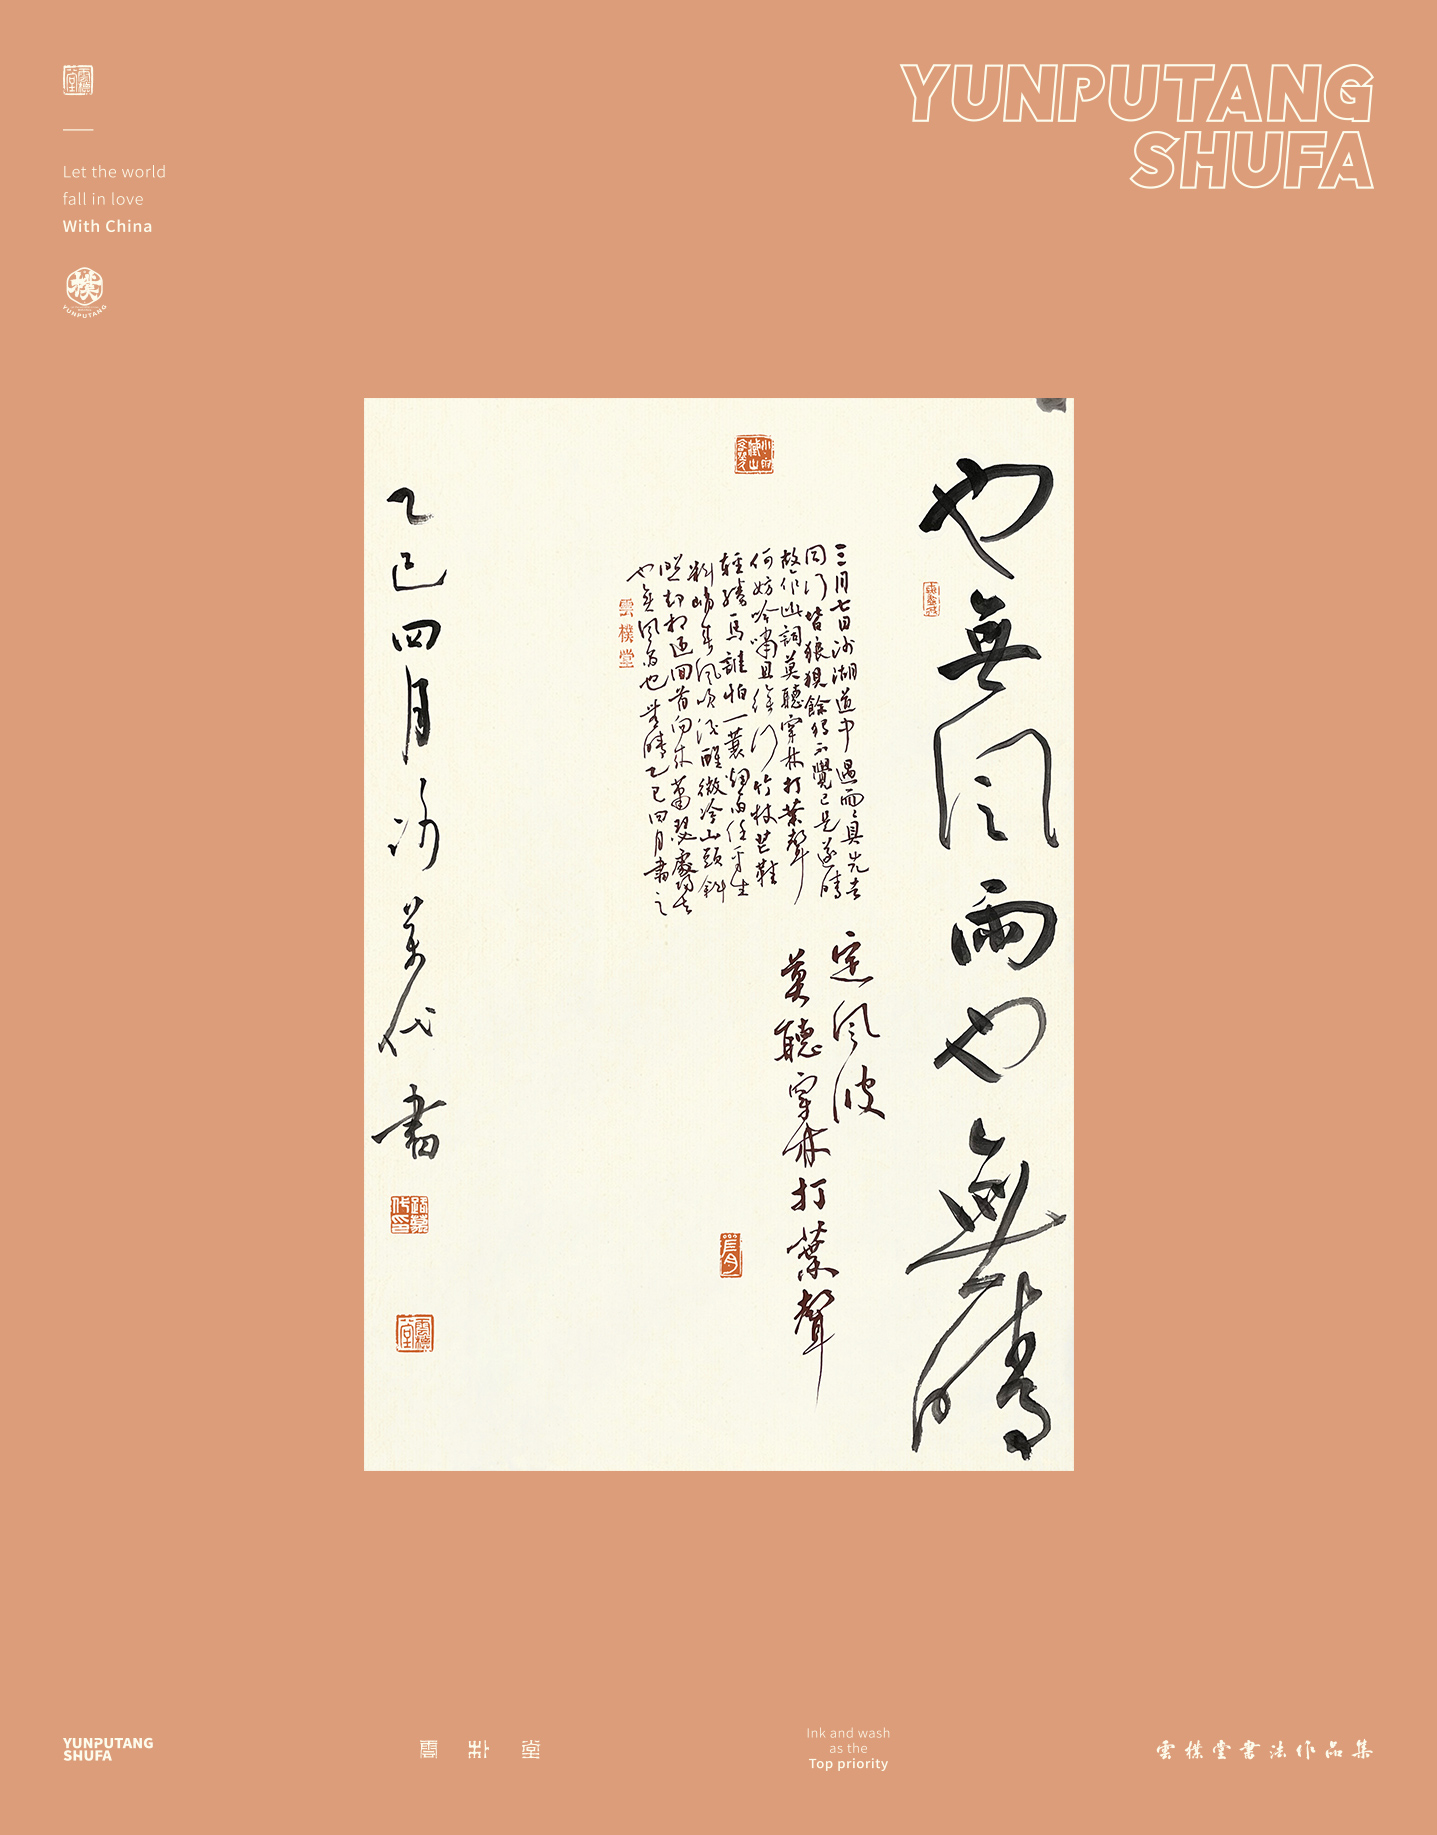 雲樸堂
Let the world
fall in love
With China
樸
YUNPUTANG
YUNPUTANG
SHUFA
也無風雨也無晴
三月七日沙湖道中遇雨雨具先去
同行皆狼狽餘獨不覺已而遂晴
故作此詞莫聽穿林打葉聲
何妨吟嘯且徐行竹杖芒鞋
輕勝馬誰怕一蓑煙雨任平生
料峭春風吹酒醒微冷山頭斜
照却相迎回首向來蕭瑟處歸去
也無風雨也無晴乙巳四月書之
雲樸堂
定風波
莫聽穿林打葉聲
乙巳四月
代書
雲樸堂
YUNPUTANG
SHUFA
雲朴堂
Ink and wash
as the
Top priority
雲樸堂書法作品集